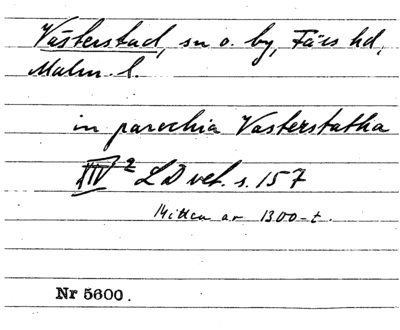 Västerstad, sn o. by, Färs hd,
Malm. l.
in parochia Vasterstatha
XIV 2 LDvet. s. 157
Mitten av 1300-t.
Nr 5600.